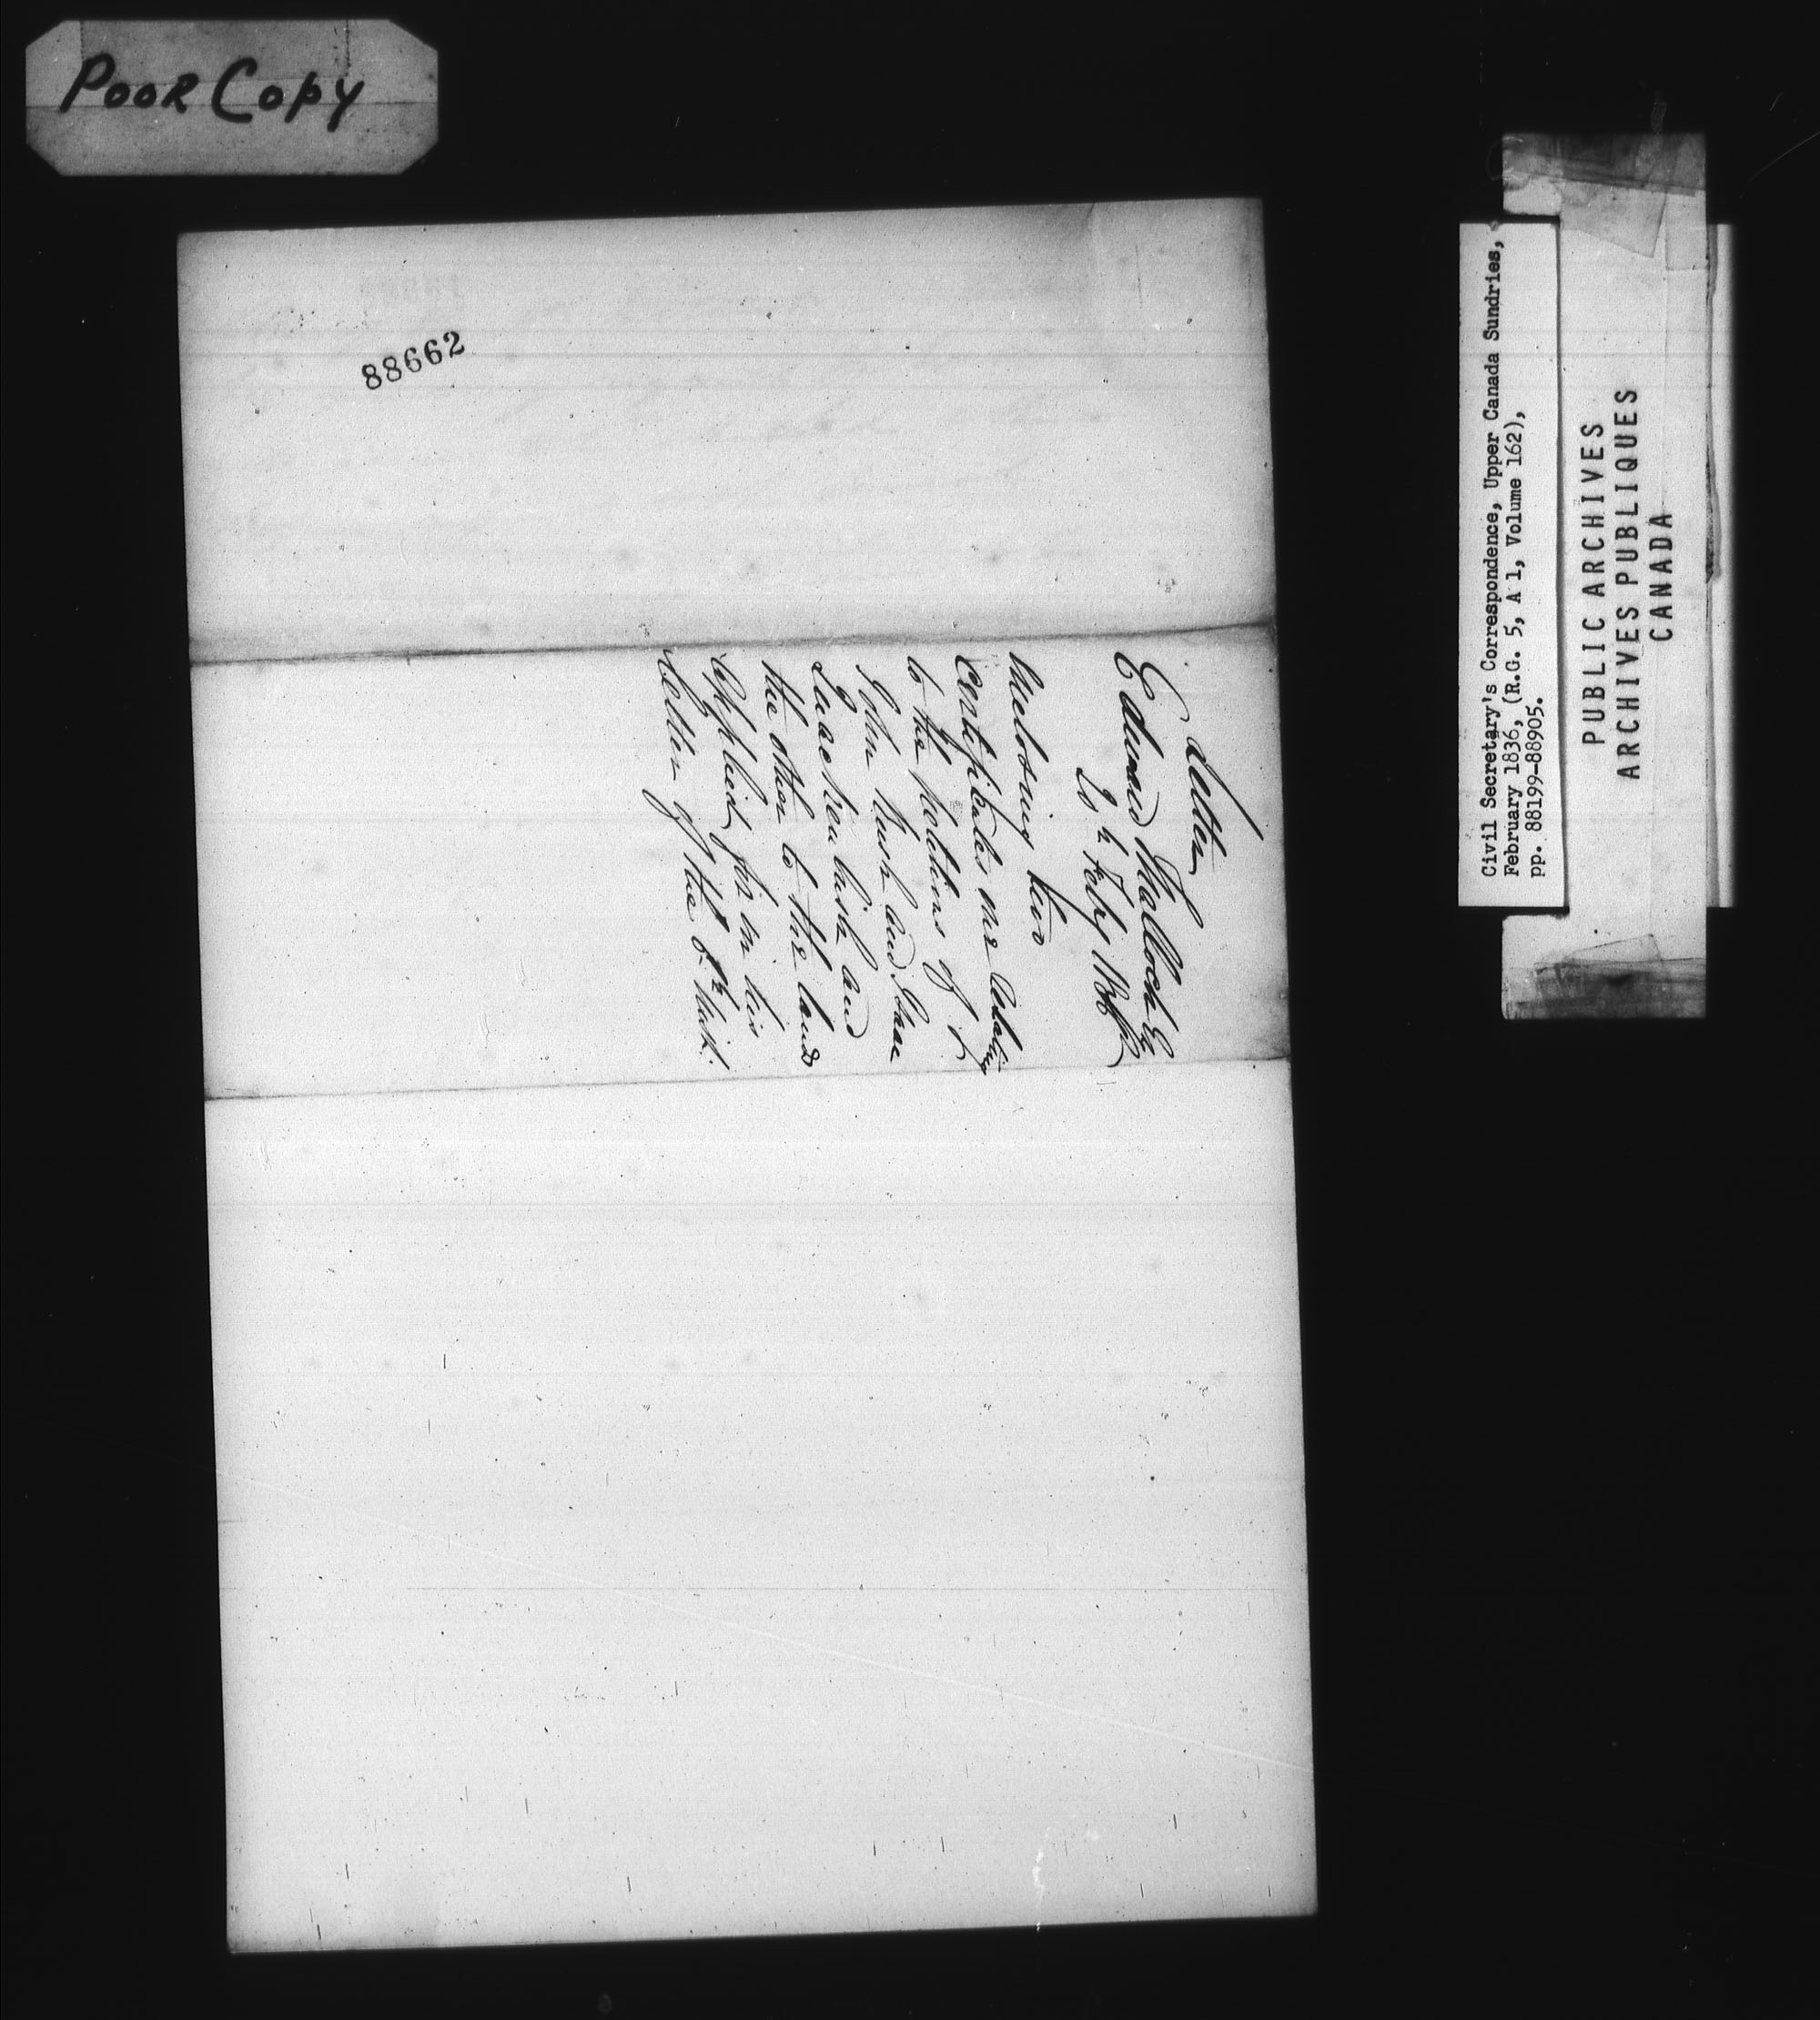 Poor Copy
88662
Letter
Edward Malloch Esq
20th Feby 1836
Enclosing two
Certificates one relating
to the Petitions of
John Nash and Isaac
and
the other to the lands
applied for in his
letter of the 8th Inst.
Civil Secretary's Correspondence, Upper Canada Sundries,
February 1836, (R.G. 5, A 1, Volume 162),
pp. 88199-88905.
PUBLIC ARCHIVES
ARCHIVES PUBLIQUES
CANADA